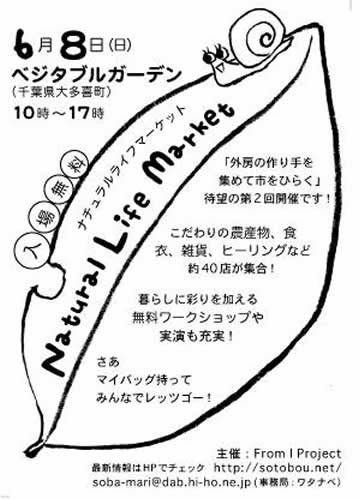 6月8日(日)
ベジタブルガーデン
(千葉県大多喜町)
10時〜17時
入場無料
ナチュラルライフマーケット
Natural Life Market
「外房の作り手を
集めて市をひらく」
待望の第2回開催です!
こだわりの農産物、食
衣、雑貨、ヒーリングなど
約40店が集合!
暮らしに彩りを加える
無料ワークショップや
実演も充実!
さあ
マイバッグ持って
みんなでレッツゴー!
主催:From I Project
最新情報はHPでチェック http://sotobou.net/
soba-mari@dab.hi-ho.ne.jp(事務局:ワタナベ)